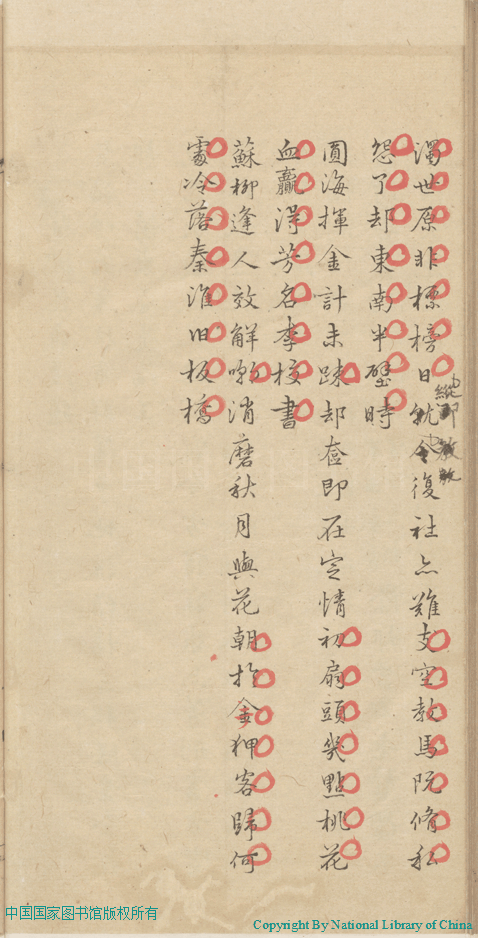 濁世原非標榜日就令復社亦難支空教馬阮脩私
怨了却東南半壁時
圓海揮金計未疎却奩即在定情初扇頭幾點桃花
血贏得芳名李校書
蘇柳逢人效解嘲消磨秋月與花朝扵金狎客歸何
處冷落秦淮旧板橋
中国国家图书馆版权所有
Copyright By National Library of China